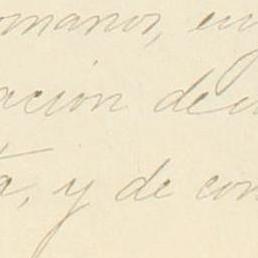 omanos, en
ación de
a, y de con